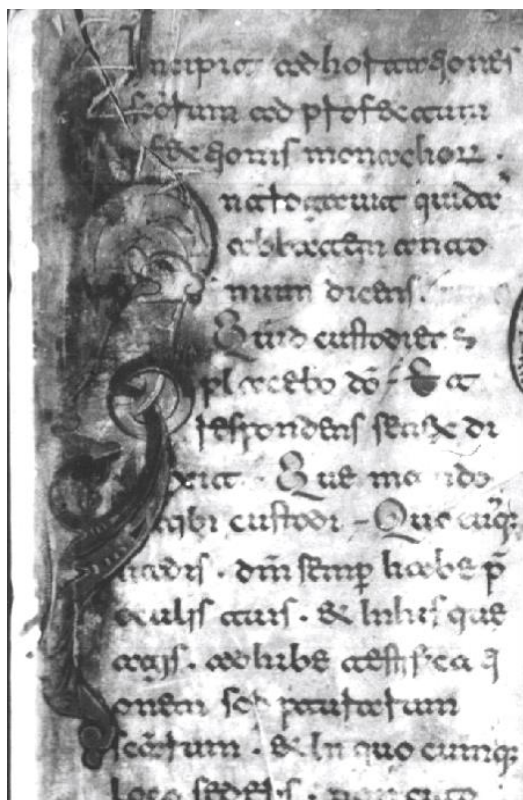 Incipit adhortationes
scōrum ad profectum
pfectionis monachorum .
nterogauit quidā
abbatem anto
nium dicens.
Quid custodiens
placebo dō . Et
respondens senex di
xit . Que mando
tibi custodi . Quo cūq;
uadis . dm̄ semp habe p̄
oculis tuis . & In his que
agis . adhibe testificati
onem scripturarum
scārum . & In quo cumq;
loco sederis . non cito